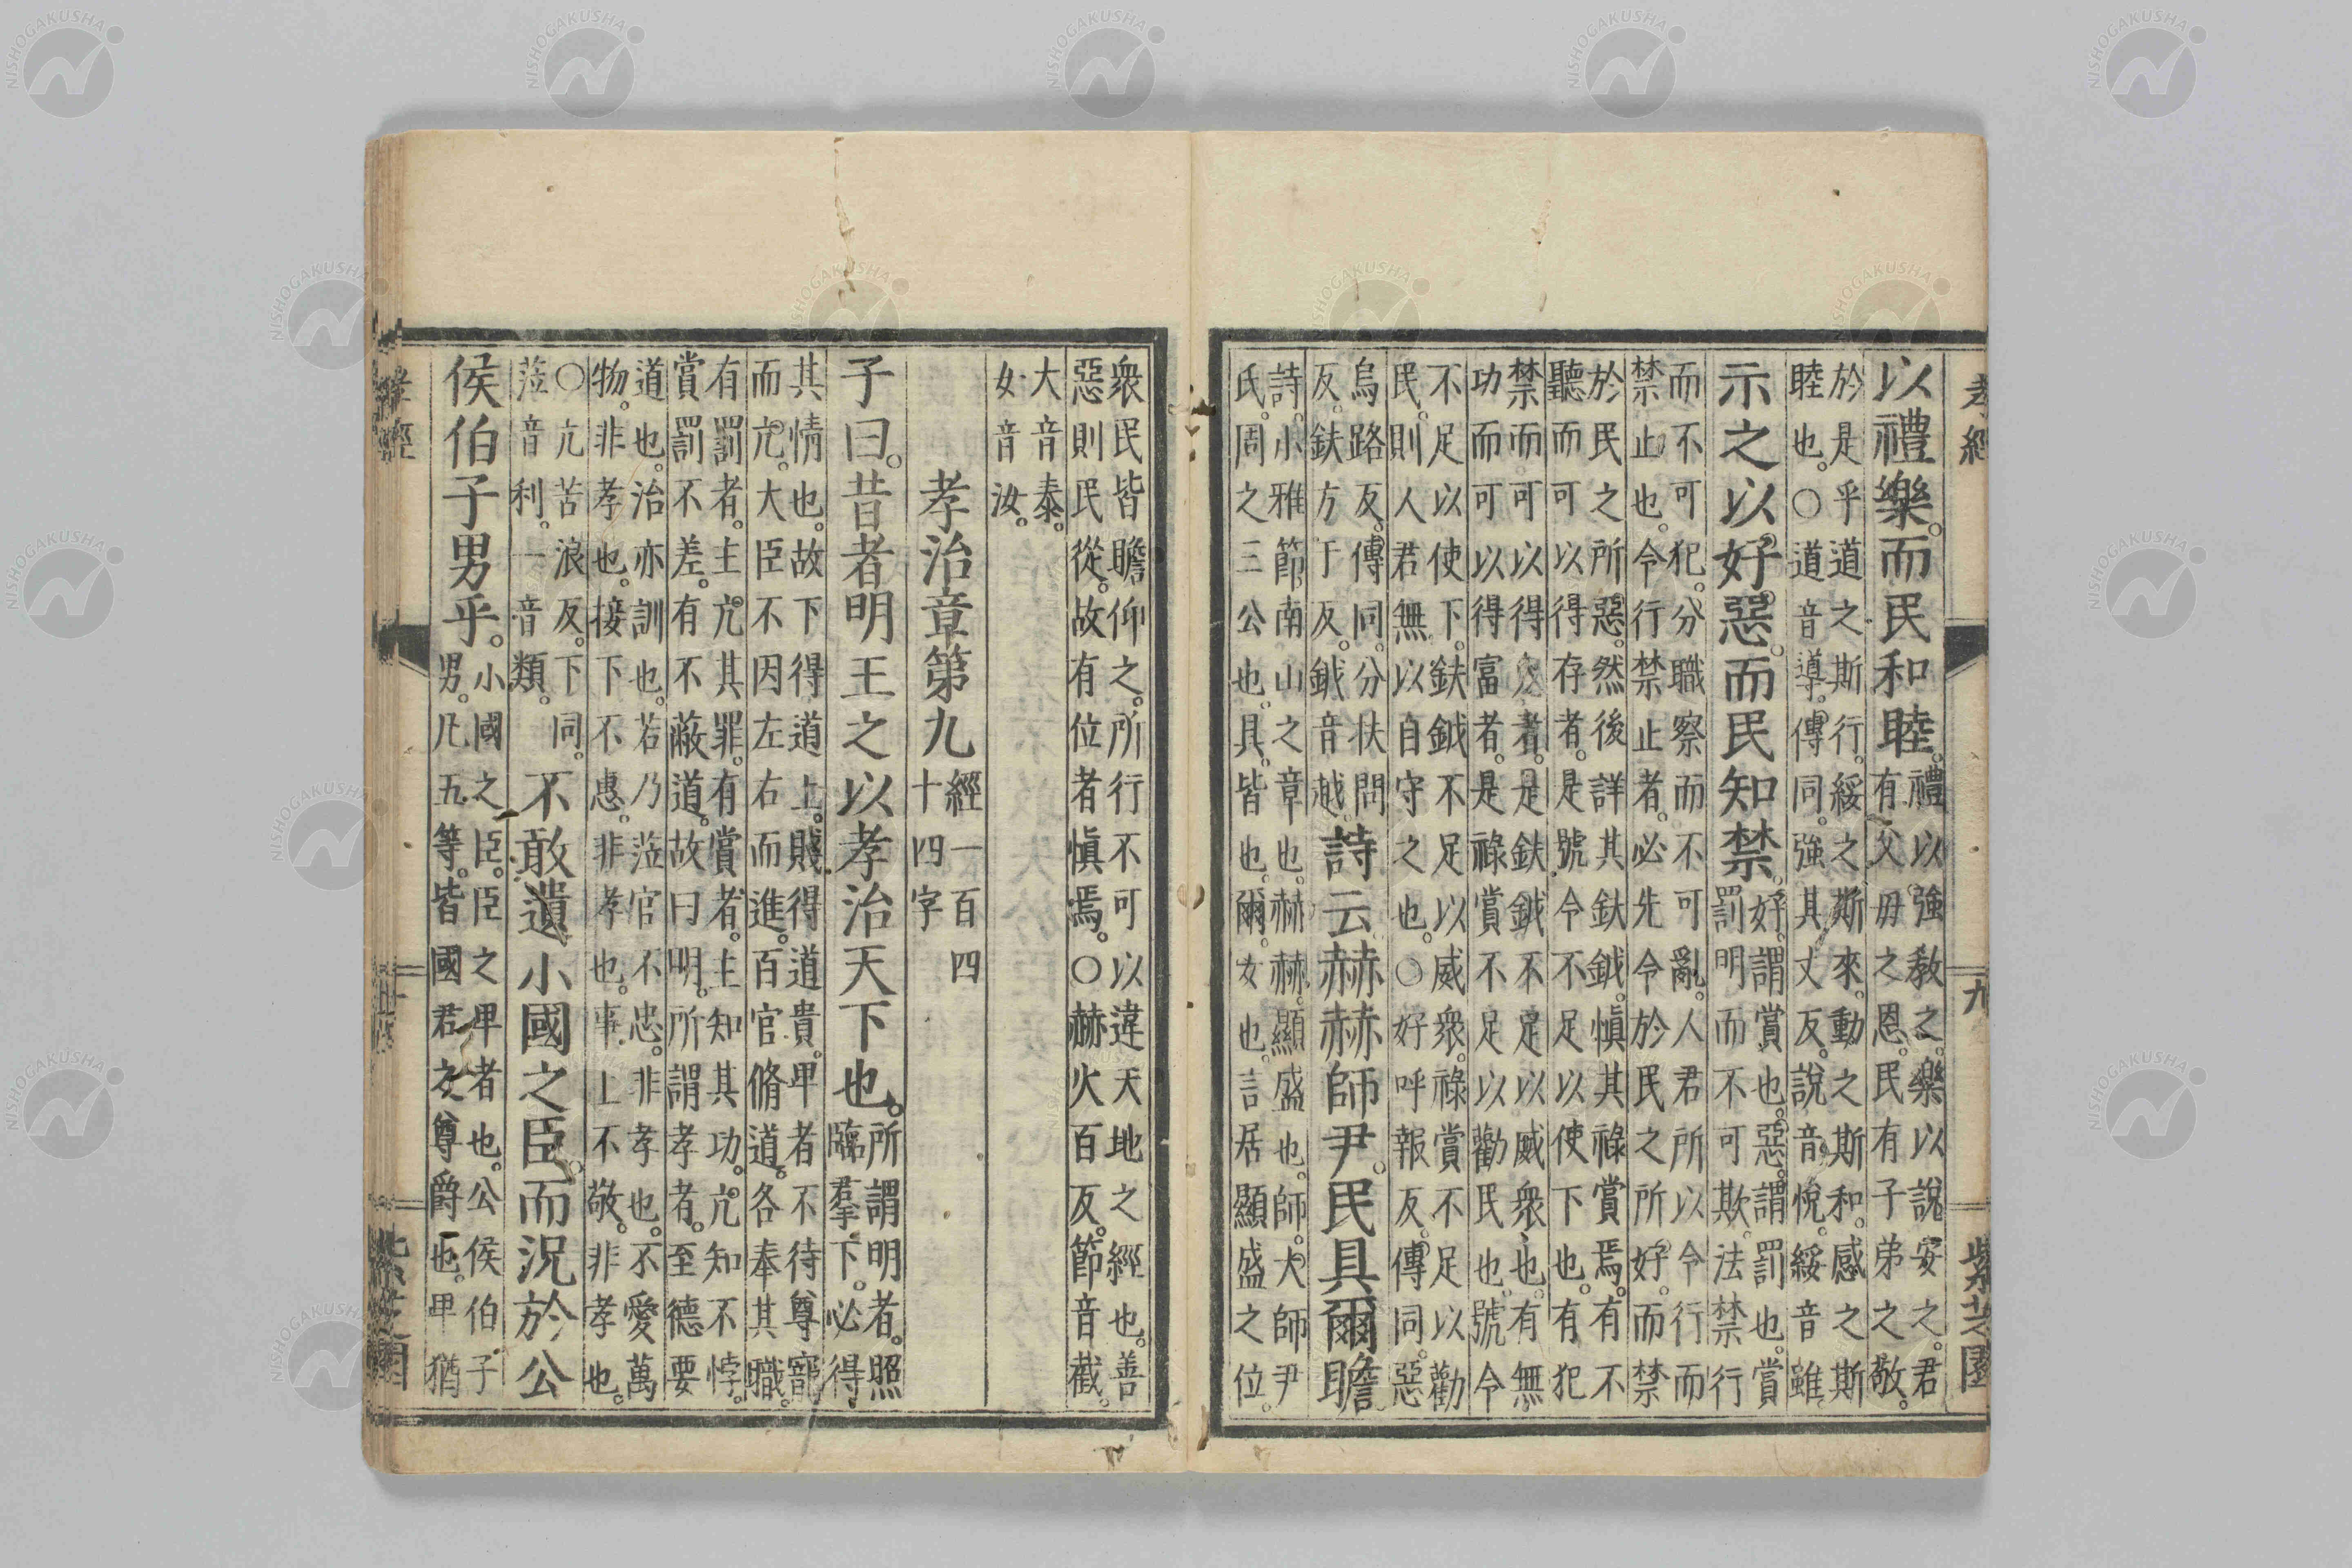 孝經
九
紫芝園
以禮樂。而民和睦。禮以強教之。樂以說安之。君
有父母之恩。民有子弟之敬。
於是乎道之斯行。綏之斯來。動之斯和。感之斯
睦也。○道音導。傳同。強其丈反。說音悅。綏音雖
示之以好惡。而民知禁。好謂賞也。惡謂罰也。賞
罰明而不可欺。法禁行
而不可犯。分職察而不可亂。人君所以令行而
禁止也。令行禁止者。必先令於民之所好。而禁
於民之所惡。然後詳其鈇鉞。慎其祿賞焉。有不
聽而可以得存者。是號令不足以使下也。有犯
禁而可以得免者。是鈇鉞不足以威衆也。有無
功而可以得富者。是祿賞不足以勸民也。號令
不足以使下。鈇鉞不足以威衆。祿賞不足以勸
民。則人君無以自守之也。○好呼報反。傳同。惡
烏路反。傳同。分扶問
反。鈇方于反。鉞音越。詩云赫赫師尹。民具爾瞻
詩。小雅節南山之章也。赫赫。顯盛也。師。大師尹
氏。周之三公也。具。皆也。爾。女也。言居顯盛之位。
衆民皆瞻仰之。所行不可以違天地之經也。善
惡則民從。故有位者愼焉。○赫火百反。節音截。
大音泰。
女音汝。
孝治章第九 經一百四
十四字
子曰。昔者明王之以孝治天下也。所謂明者。照
臨羣下。必得
其情也。故下得道上。賤得道貴。卑者不待尊寵
而亢。大臣不因左右而進。百官脩道。各奉其職。
有罰者。主亢其罪。有賞者。主知其功。亢知不悖。
賞罰不差。有不蔽道。故曰明。所謂孝者。至德要
道也。治亦訓也。若乃涖官不忠。非孝也。不愛萬
物。非孝也。接下不惠。非孝也。事上不敬。非孝也。
○亢苦浪反。下同。
涖音利。一音類。不敢遺小國之臣。而況於公
侯伯子男乎。小國之臣。臣之卑者也。公侯伯子
男。凡五等。皆國君之尊爵也。卑猶
孝經